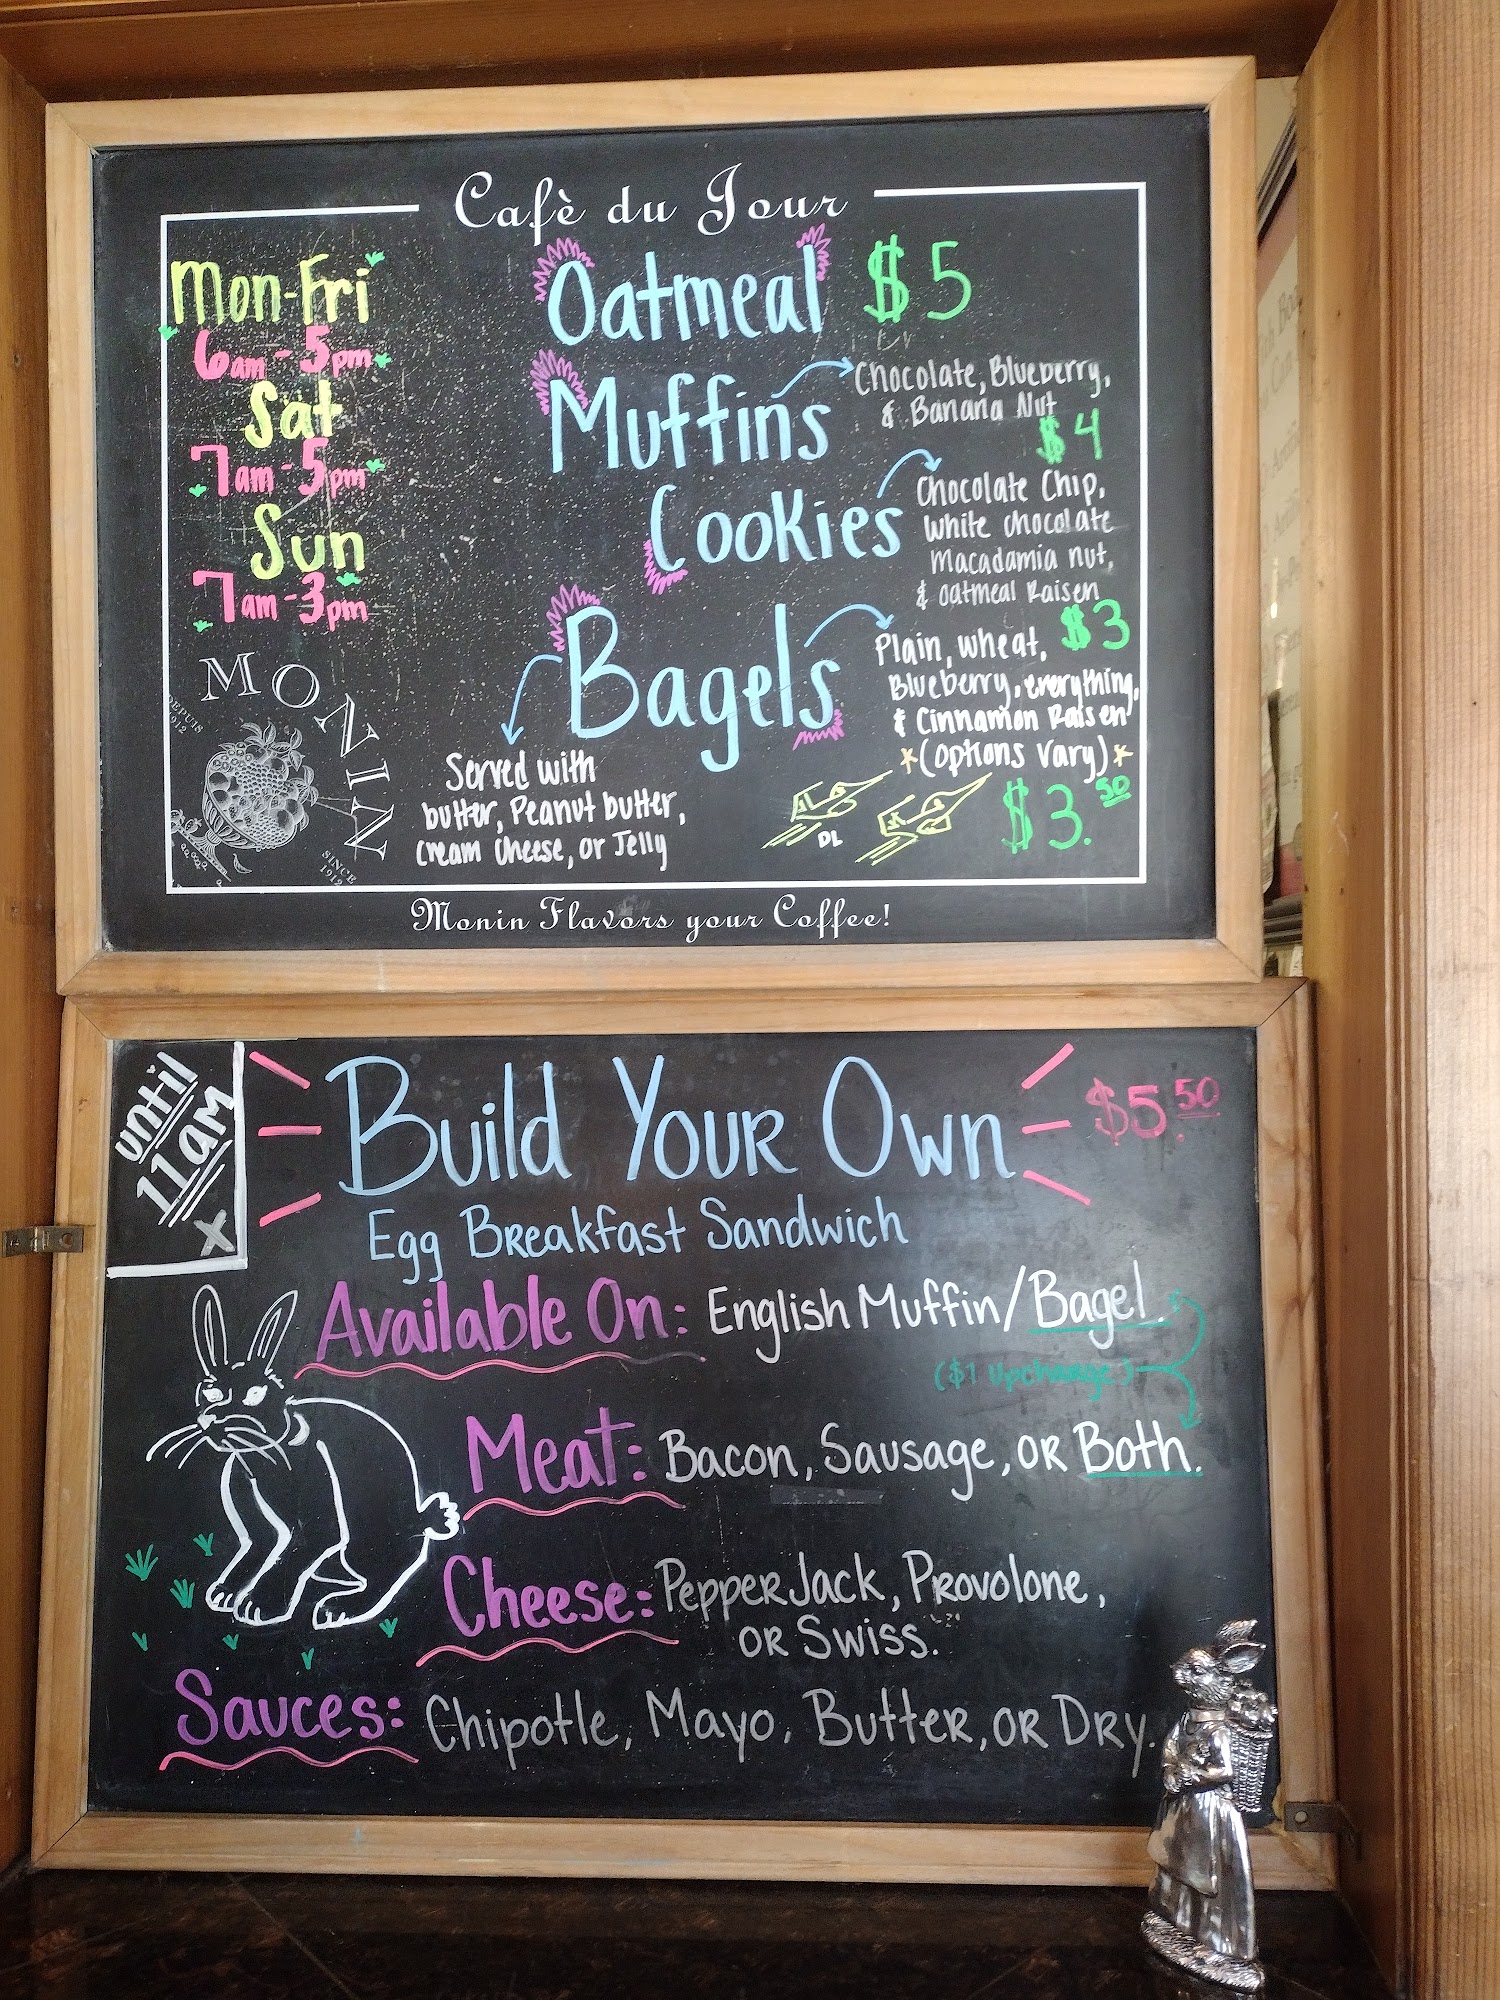 Cafè du Jour
Mon-Fri
6am-5pm
Sat
7am-5pm
Sun
7am-3pm
Oatmeal $5
Muffins
Chocolate, Blueberry,
& Banana Nut
$4
Cookies
Chocolate Chip,
White chocolate
Macadamia nut,
& oatmeal Raisen
$3
Bagels
Plain, wheat,
Blueberry, everything,
& Cinnamon Raisen
*(options vary)*
$3.50
Served with
butter, Peanut butter,
cream cheese, or Jelly
DL
MONIN
DEPUIS
1912
SINCE
1912
Monin Flavors your Coffee!
until
11am
X
Build Your Own
$5.50
Egg Breakfast Sandwich
Available On: English Muffin/Bagel.
($1 Upcharge)
Meat: Bacon, Sausage, or Both.
Cheese: Pepper Jack, Provolone,
or Swiss.
Sauces: Chipotle, Mayo, Butter, or Dry.